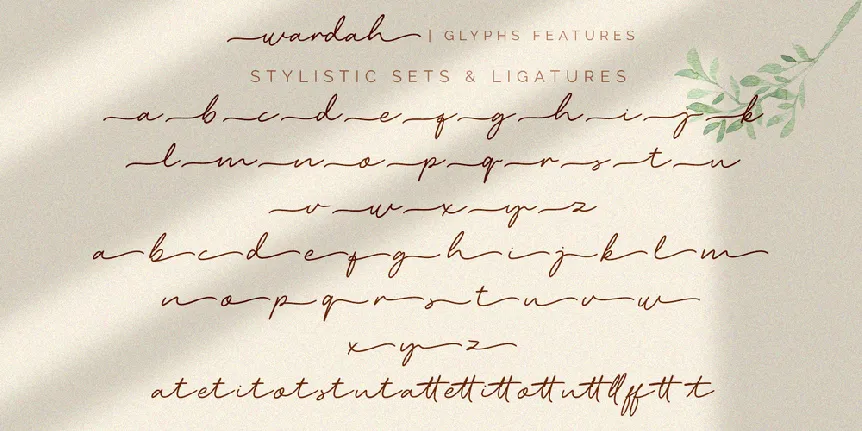 wardah | GLYPHS FEATURES
STYLISTIC SETS & LIGATURES
a b c d e f g h i j k
l m n o p q r s t u
v w x y z
a b c d e f g h i j k l m
n o p q r s t u v w
x y z
at et it ot st ut att ett itt ott utt ll ff tt t